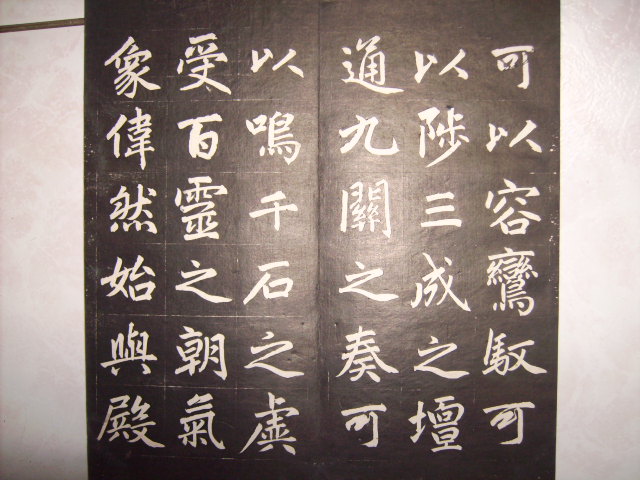 可以容鸞馭可
以陟三成之壇
通九關之奏可
以鳴千石之虡
受百靈之朝氣
象偉然始與殿